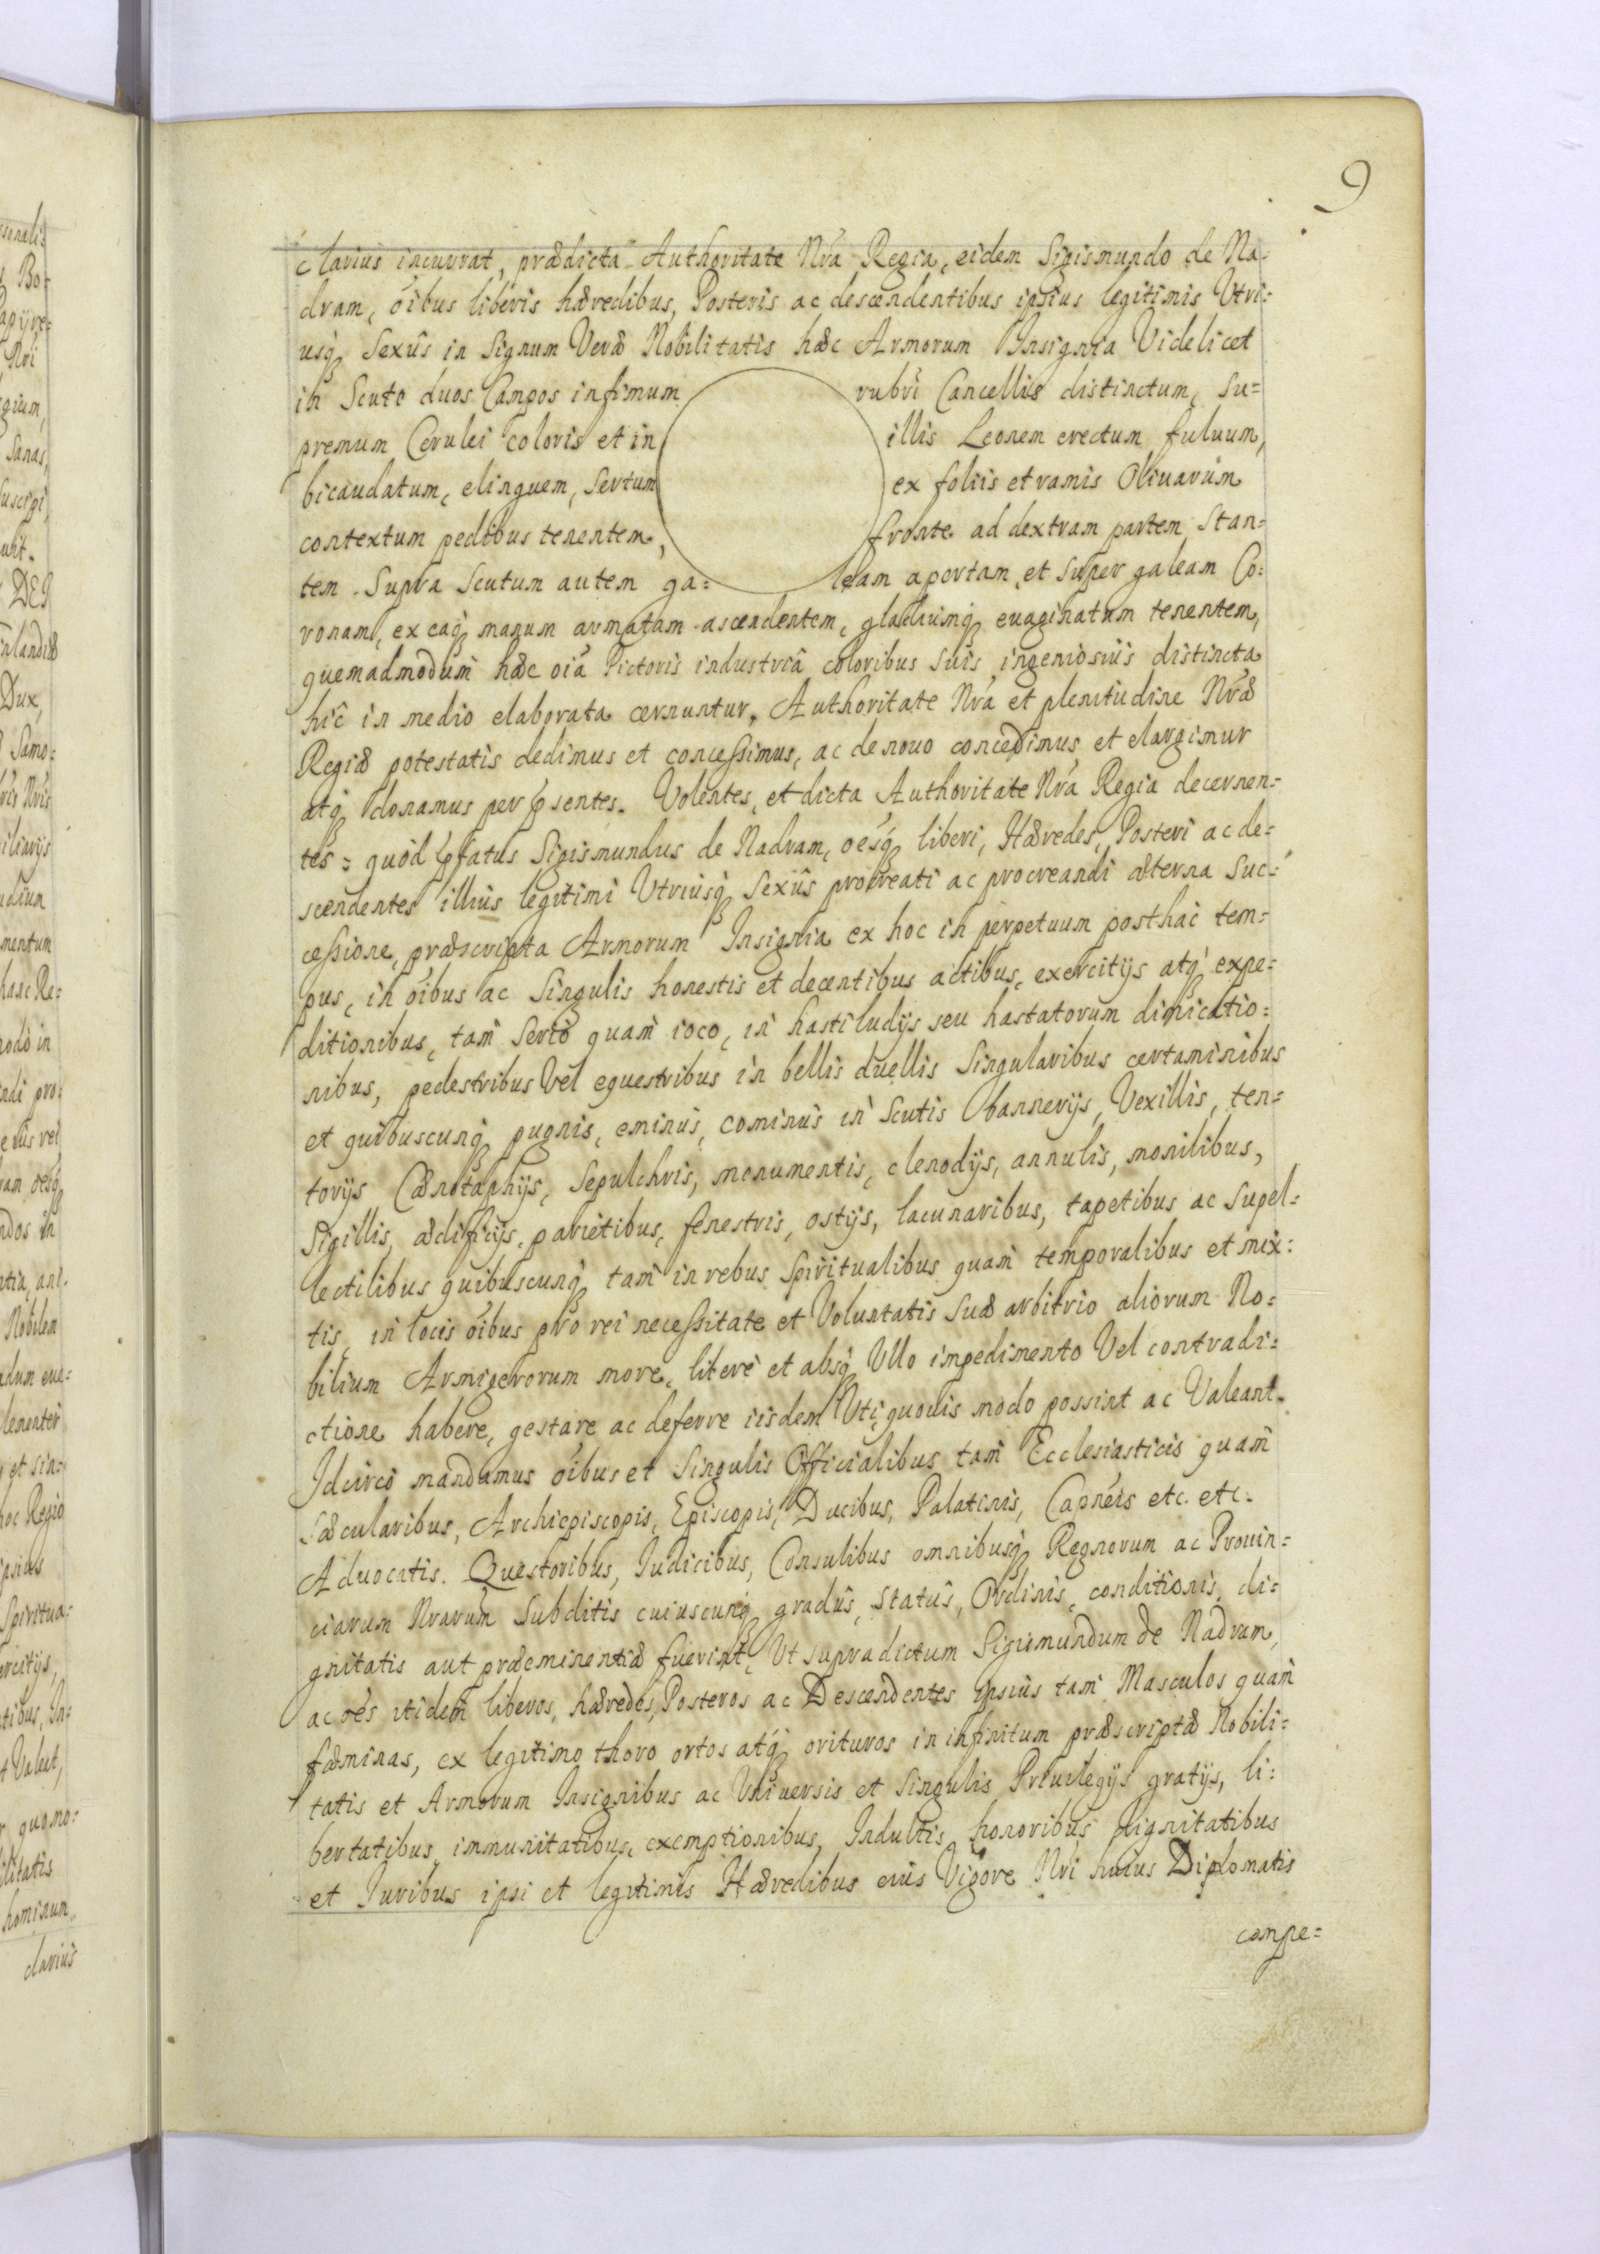 9
clarius incurrat, prædicta Authoritate Nr̃a Regia, eidem Sigismundo de Na-
dram, oĩbus liberis hæredibus, Posteris ac descendentibus ipsius legitimis Utri=
usq; Sexûs in Signum Veræ Nobilitatis hæc Armorum Insignia Videlicet
in Scuto duos Campos infimum rubri Cancellis distinctum, Su=
premum Cerulei coloris et in illis Leonem erectum fuluum,
bicaudatum, elinguem, Sertum ex foliis et ramis Oliuarum
contextum pedibus tenentem, fronte ad dextram partem Stan=
tem. Supra Scutum autem ga= leam apertam, et super galeam Co=
ronam, ex eaq; manum armatam ascendentem, gladiumq; euaginatum tenentem,
quemadmodum hæc oĩa Pictoris industriâ coloribus suis ingeniosius distincta
hîc in medio elaborata cernuntur, Authoritate Nr̃a et plenitudine Nr̃æ
Regiæ potestatis dedimus et concessimus, ac de nouo concedimus et elargimur
atq; donamus per p̃sentes. Volentes, et dicta Authoritate Nr̃a Regia decernen=
tes = quòd p̃fatus Sigismundus de Nadram, oẽsq; liberi, Hæredes, Posteri ac de=
scendentes illius legitimi Utriusq; Sexûs procreati ac procreandi æterna Suc=
cessione, præscripta Armorum Insignia ex hoc in perpetuum posthac tem=
pus, in oĩbus ac Singulis honestis et decentibus actibus, exercitijs atq; expe=
ditionibus, tam Serio quam ioco, in hastiludijs seu hastatorum dimicatio=
nibus, pedestribus Vel equestribus in bellis duellis Singularibus certaminibus
et quibuscunq; pugnis, eminus, cominus in Scutis bannerijs, Vexillis, ten=
torijs Cænotaphijs, Sepulchris, monumentis, clenodijs, annulis, monilibus,
Sigillis, ædificijs, parietibus, fenestris, ostijs, lacunaribus, tapetibus ac Supel=
lectilibus quibuscunq; tam in rebus Spiritualibus quam temporalibus et mix=
tis, in locis oĩbus pro rei necessitate et Voluntatis Suæ arbitrio aliorum No=
bilium Armigerorum more, liberè et absq; Ullo impedimento Vel contradi=
ctione habere, gestare ac deferre iisdem Uti, quouis modo possint ac Valeant.
Idcirco mandamus oĩbus et Singulis Officialibus tam Ecclesiasticis quam
Sæcularibus, Archiepiscopis, Episcopis, Ducibus, Palatinis, Capnẽis etc. etc.
Aduocatis. Quæstoribus, Iudicibus, Consulibus omnibusq; Regnorum ac Prouin=
ciarum Nrarum Subditis cuiuscunq; gradûs, statûs, Ordinis, conditionis, di=
gnitatis aut præeminentiæ fuerint, Ut supradictum Sigismundum de Nadram,
ac oẽs itidem liberos, hæredes, Posteros ac Descendentes ipsius tam Masculos quam
fæminas, ex legitimo thoro ortos atq; orituros in infinitum præscriptæ Nobili=
tatis et Armorum Insignibus ac Uniuersis et Singulis Priuilegijs gratijs, li=
bertatibus, immunitatibus, exemptionibus, Indultis, honoribus dignitatibus
et Iuribus ipsi et legitimis Hæredibus eius Vigore Nri huius Diplomatis
compe=